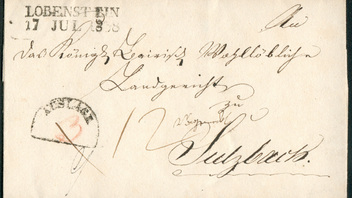 LOBENSTEIN
17 JUL
An
das Königl. Bairisch Wohllöbliche
Landgericht
zu
AUSLAGE
12
Sulzbach.